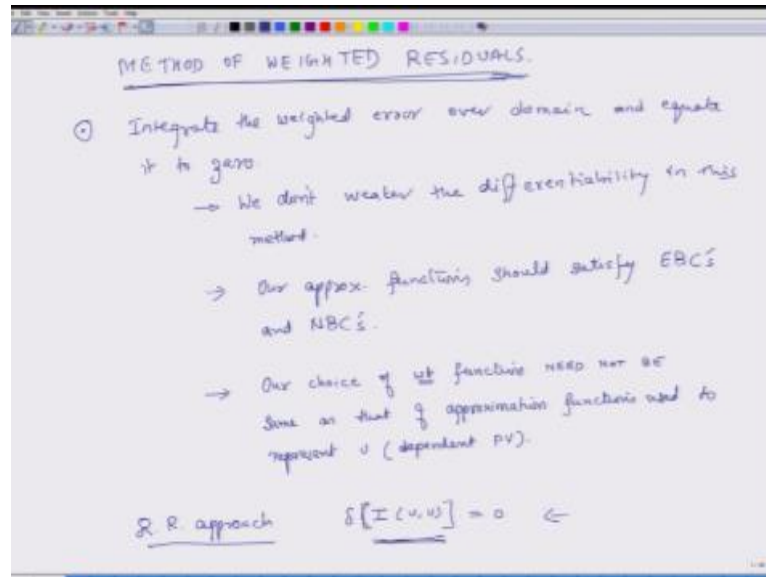 METHOD OF WEIGHTED RESIDUALS.
⊙ Integrate the weighted error over domain and equate
it to zero
→ We don't weaken the differentiability in this
method.
→ Our approx. functions should satisfy EBC's
and NBC's.
→ Our choice of wt function NEED NOT BE
same as that of approximation functions used to
represent u (dependent PV).
R.R. approach δ[I(u,u)] = 0 ←